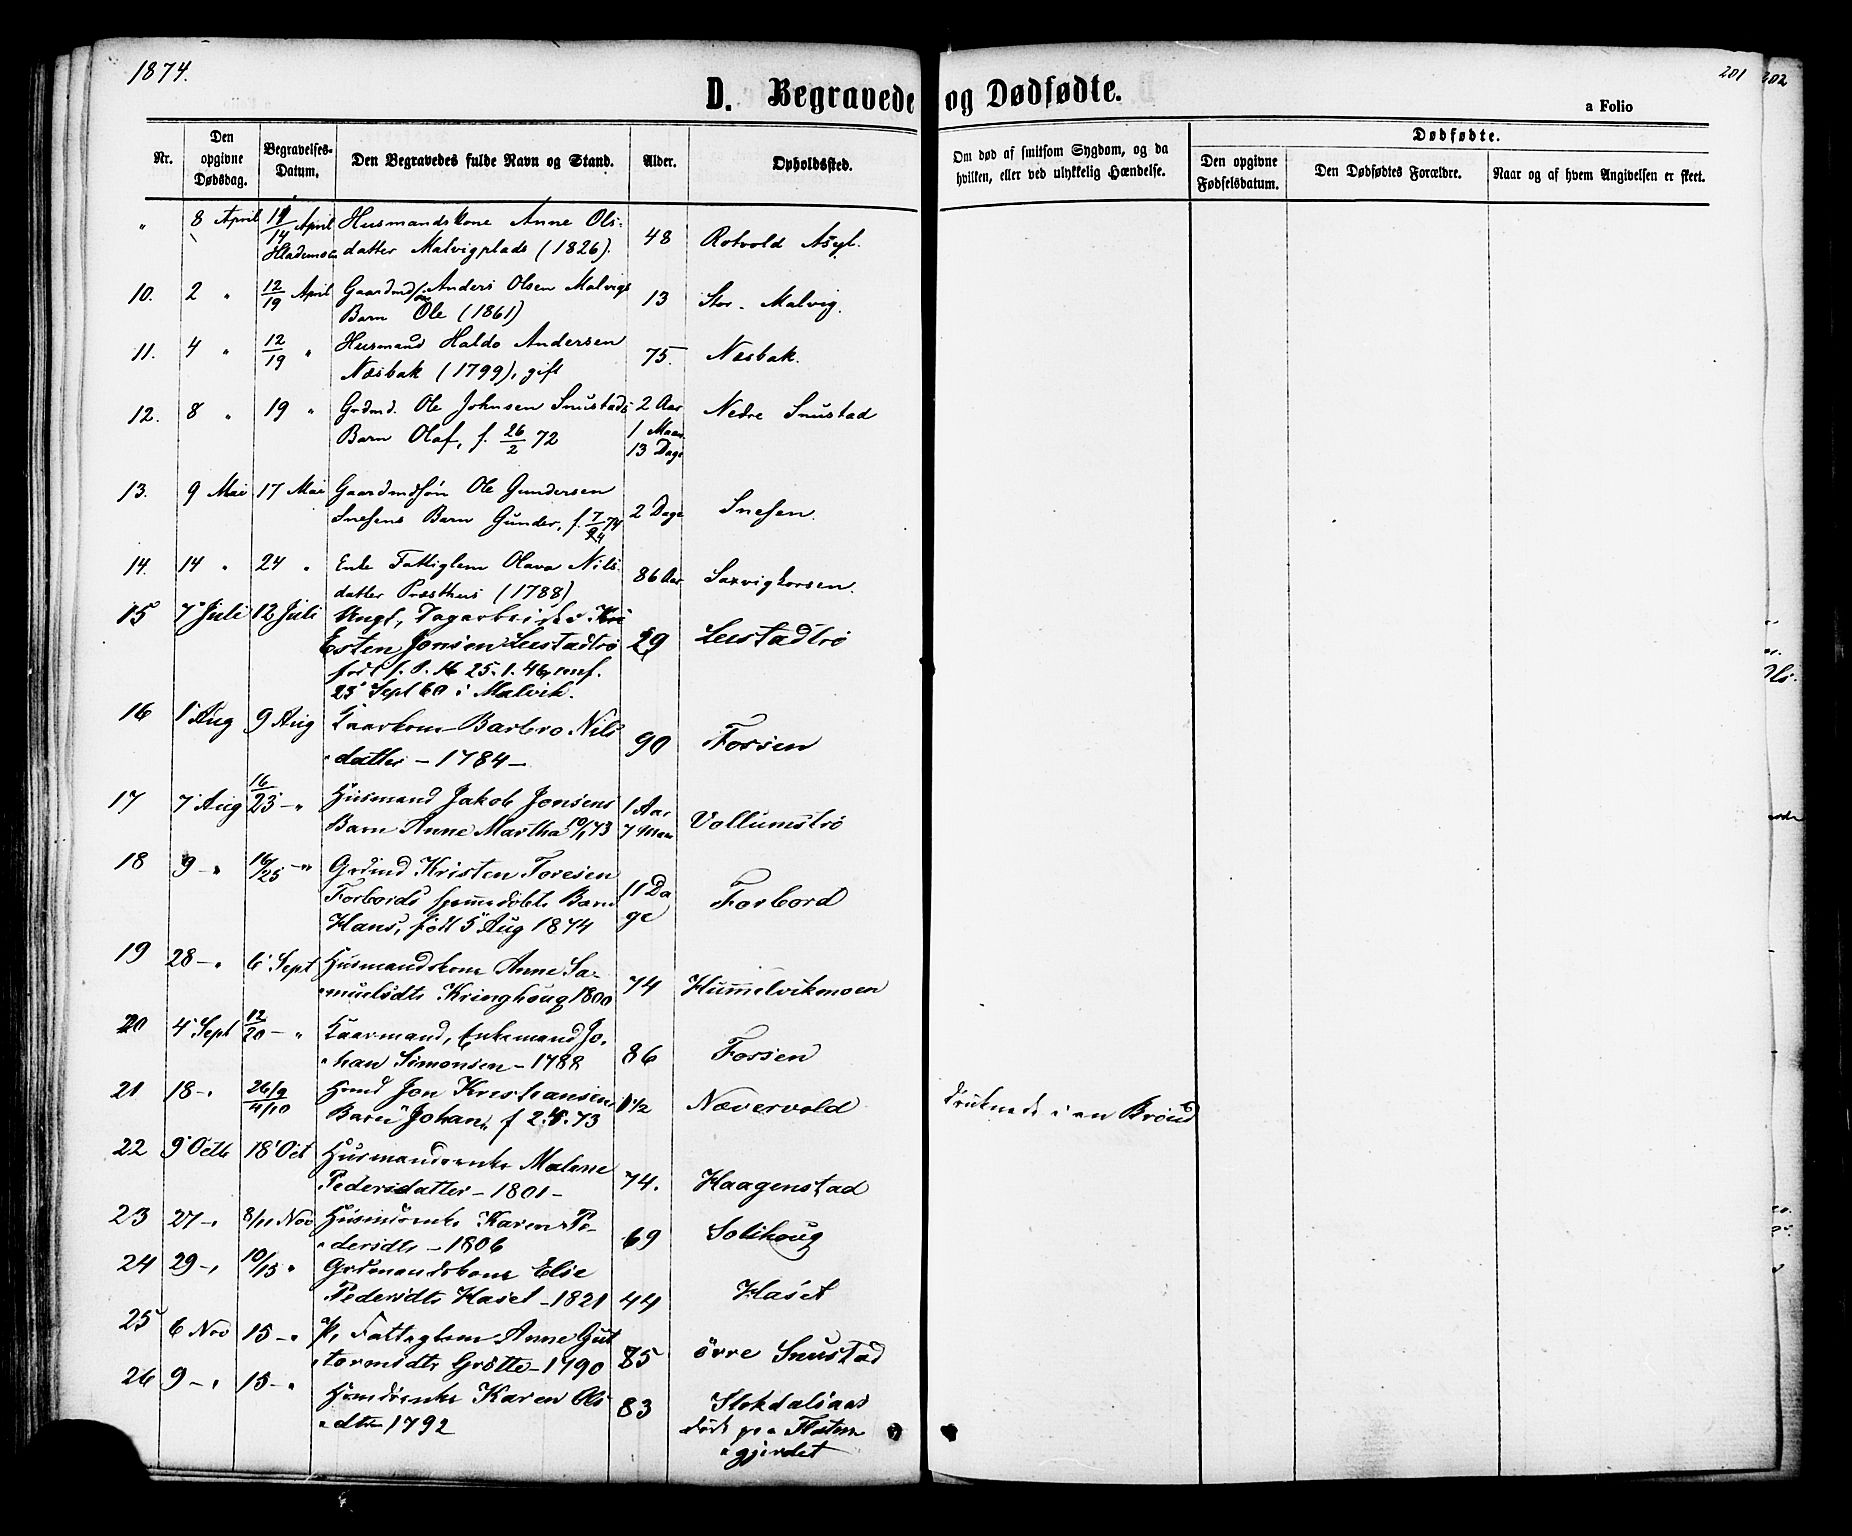 1874.
201
202
D. Begravede og Dødfødte.
a Folio
Nr.
Den opgivne Dødsdag.
Begravelses-Datum.
Den Begravedes fulde Navn og Stand.
Alder.
Opholdssted.
Om død af smitsom Sygdom, og da hvilken, eller ved ulykkelig Hændelse.
Dødfødte.
Den opgivne Fødselsdatum.
Den Dødfødtes Forældre.
Naar og af hvem Angivelsen er skeet.
" 8 April 14 April Husmandskone Anne Ols-
datter Malvigplads (1826). 48 Rotvold Asyl.
10. 2 " 12/19 April Gaardmd Anders Olsen Malvigs
Barn Ole (1861) 13 Stor-Malvig.
11. 4 " 12/19 " Husmand Haldo Andersen
Næsbak (1799), gift 75. Næsbak.
12. 8 " 19 " Grdmd. Ole Johnsen Snustads 2 Aar Nedre Snustad
Barn Olaf, f. 26/2 72 1 Maan.
13 Dage
13. 9 Mai 17 Mai Gaardmdsøn Ole Gundersen
Snesens Barn Gunder, f. 7/5 74 2 Dage Snesen.
14. 14 " 24 " Enke Fattiglem Olava Nils-
datter Præsthus (1788) 86 Aar Saxvigkorsen.
15 7 Juli 12 Juli Ungk, Dagarbeider
Esten Jonsen Leistadtrø 29 Leistadtrø
født 25.1.46, conf.
25 Sept 60 i Malvik.
16 1 Aug 9 Aug Kaarkone Barbro Nils
datter - 1784 - 90 Forsen
17 7 Aug 16/23 - " Husmand Jakob Jonsens 1 Aar
Barn Anne Martha 10/1 73 7 Maan Vollumstrø
18 9 - " 16/25 - " Grdmd Kristen Toresen
Forbords hjemmedøbte Barn 11 Da
Hans, født 5 Aug 1874 ge Forbord
19 28 - " 6 Sept Husmandskone Anne Sa-
muelsdtr Kringhoug 1800 74 Hummelvikmoen
20 4 Sept 12/20 - " Kaarmand, Enkemand Jo-
han Simonsen - 1788 86 Forsen
21 18 - " 26/9 4/10 Hmd Jon Kristiansen
Barn Johan, f 2.4.73 1 1/2 Nævervold druknede i en Brønd
22 9 Octb 18 Oct Husmandsenke Malene
Pedersdatter - 1801 - 74. Haagenstad
23 27 - " 8/11 Nov Husmdsenke Karen Pe-
dersdtr - 1806 69 Solihoug
24 29 - " 10/15 " Grdmandskone Else
Pedersdtr Haset - 1821 44 Haset
25 6 Nov 15 - " Fattiglem Anne Gut
tormsdtr Grøtte - 1790 85 øvre Snustad
26 9 - " 15 - " Hsmdsenke Karen Ols
dtr 1792 83 Stokdalsaas
døde paa Flaten
gjerdet